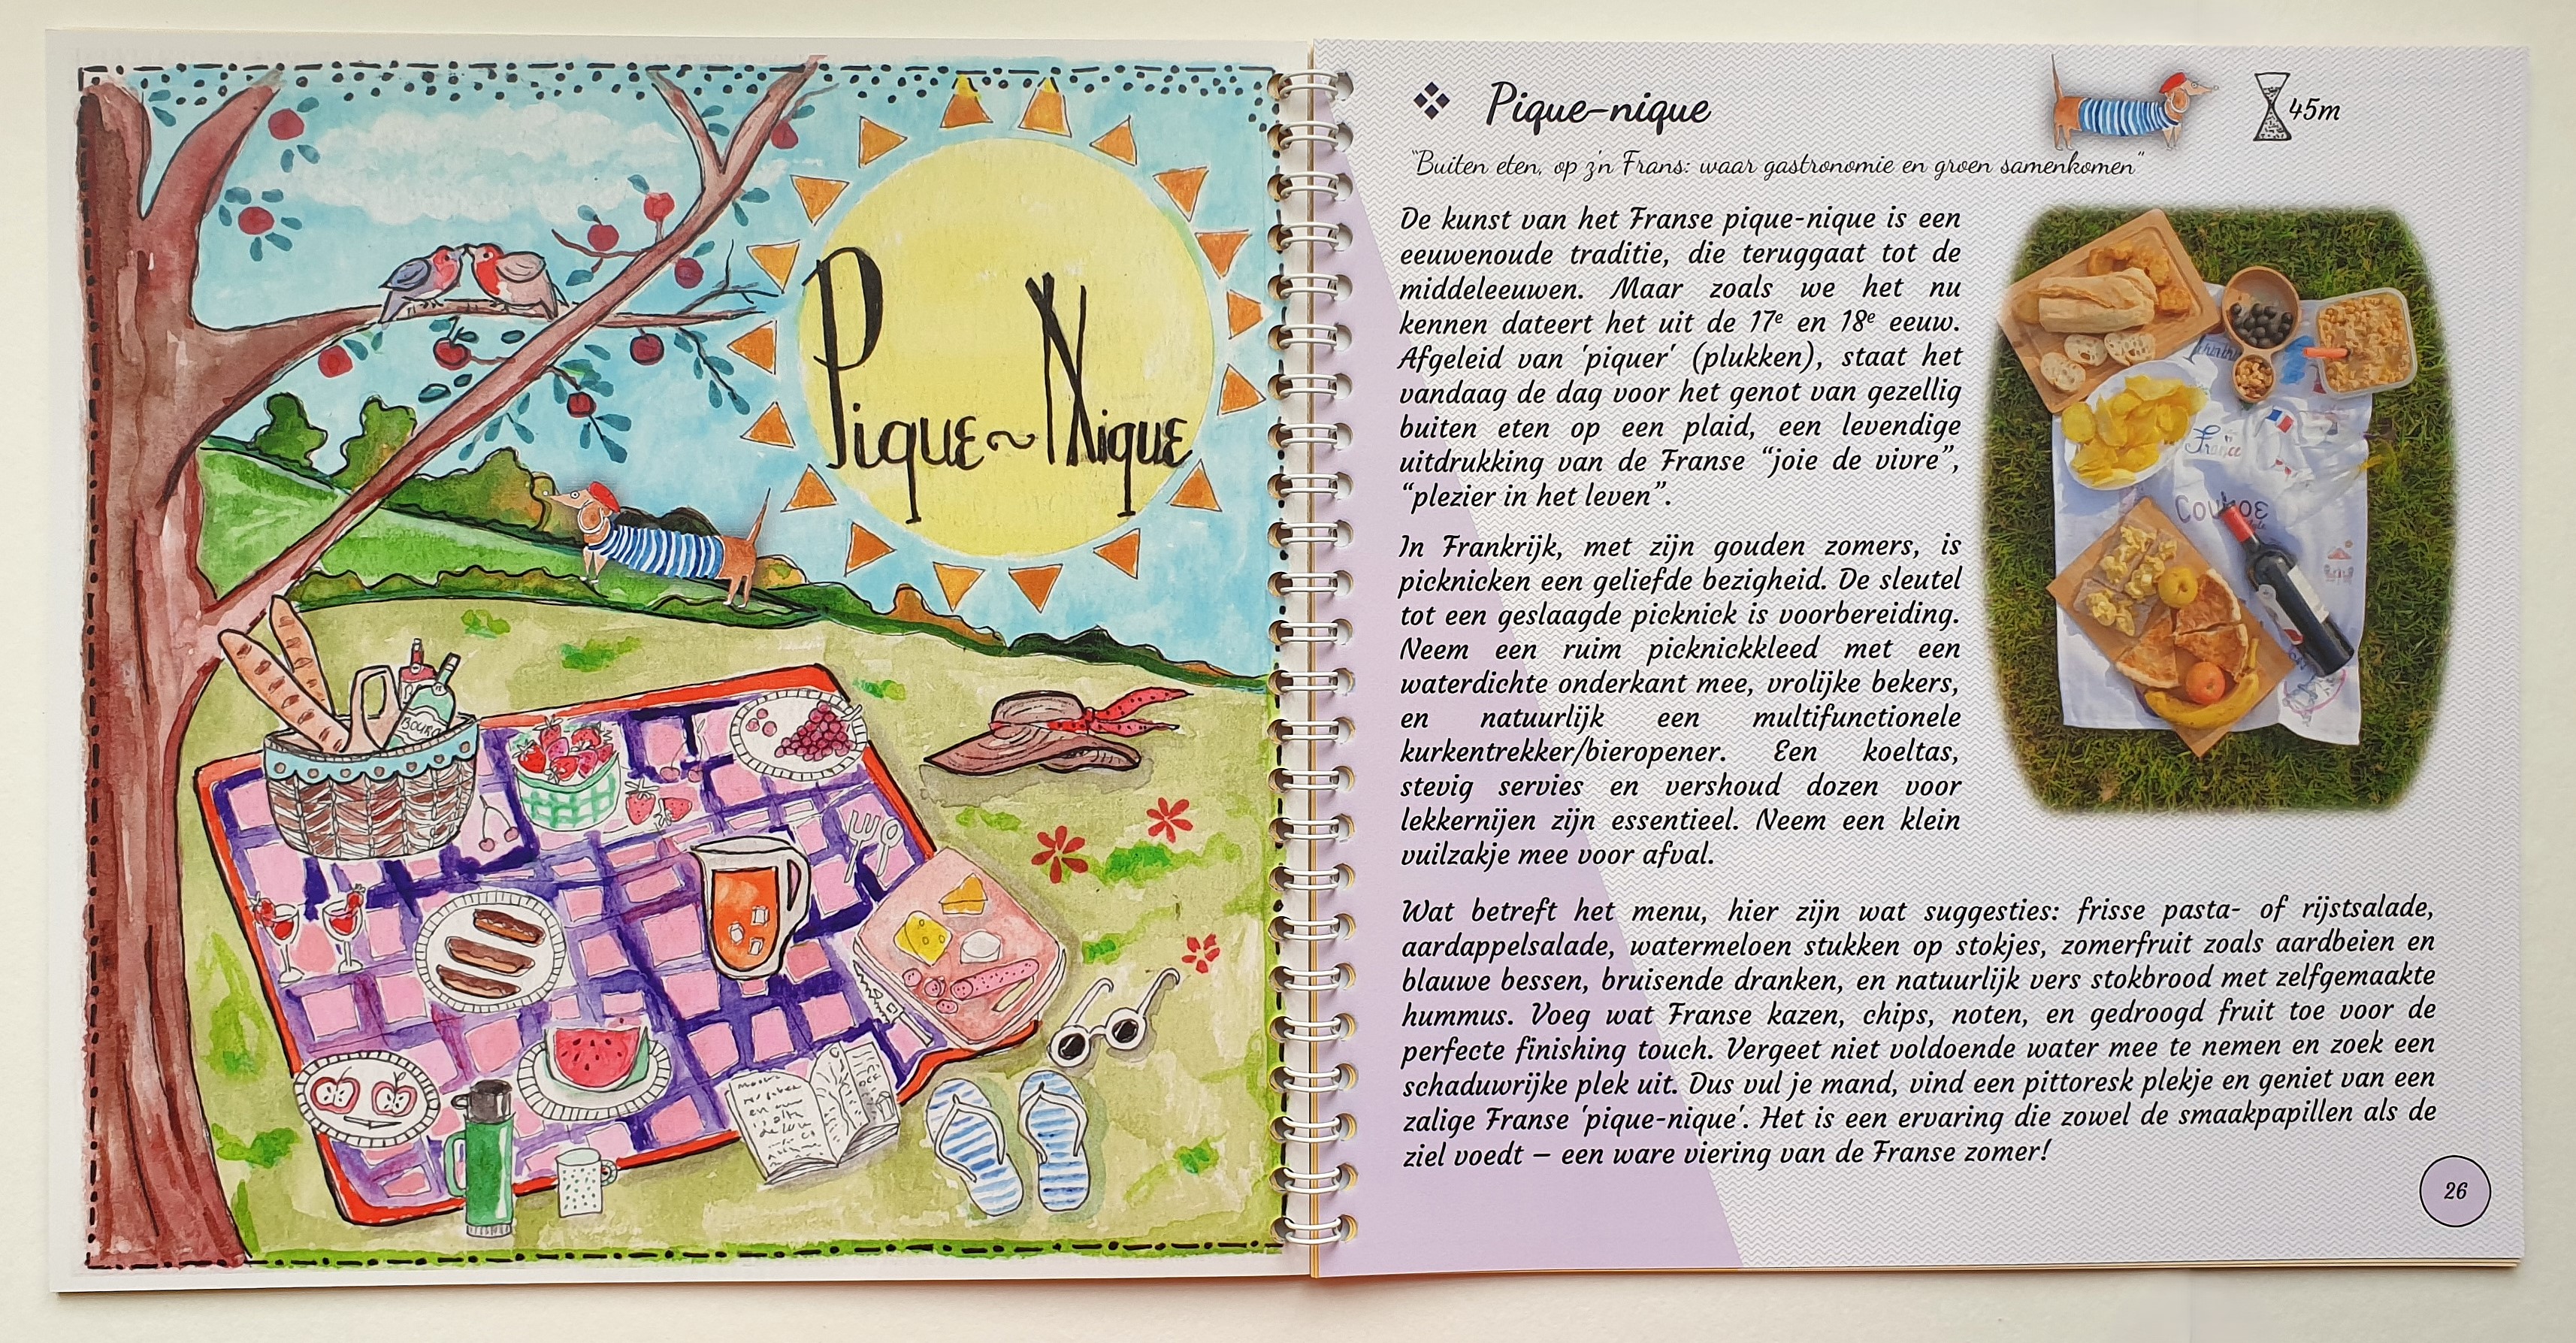 Pique~Nique
BOURG
Pique-nique
45m
"Buiten eten, op z'n Frans: waar gastronomie en groen samenkomen"
De kunst van het Franse pique-nique is een
eeuwenoude traditie, die teruggaat tot de
middeleeuwen. Maar zoals we het nu
kennen dateert het uit de 17e en 18e eeuw.
Afgeleid van 'piquer' (plukken), staat het
vandaag de dag voor het genot van gezellig
buiten eten op een plaid, een levendige
uitdrukking van de Franse “joie de vivre”,
“plezier in het leven”.
In Frankrijk, met zijn gouden zomers, is
picknicken een geliefde bezigheid. De sleutel
tot een geslaagde picknick is voorbereiding.
Neem een ruim picknickkleed met een
waterdichte onderkant mee, vrolijke bekers,
en natuurlijk een multifunctionele
kurkentrekker/bieropener. Een koeltas,
stevig servies en vershoud dozen voor
lekkernijen zijn essentieel. Neem een klein
vuilzakje mee voor afval.
France
Wat betreft het menu, hier zijn wat suggesties: frisse pasta- of rijstsalade,
aardappelsalade, watermeloen stukken op stokjes, zomerfruit zoals aardbeien en
blauwe bessen, bruisende dranken, en natuurlijk vers stokbrood met zelfgemaakte
hummus. Voeg wat Franse kazen, chips, noten, en gedroogd fruit toe voor de
perfecte finishing touch. Vergeet niet voldoende water mee te nemen en zoek een
schaduwrijke plek uit. Dus vul je mand, vind een pittoresk plekje en geniet van een
zalige Franse 'pique-nique'. Het is een ervaring die zowel de smaakpapillen als de
ziel voedt – een ware viering van de Franse zomer!
26